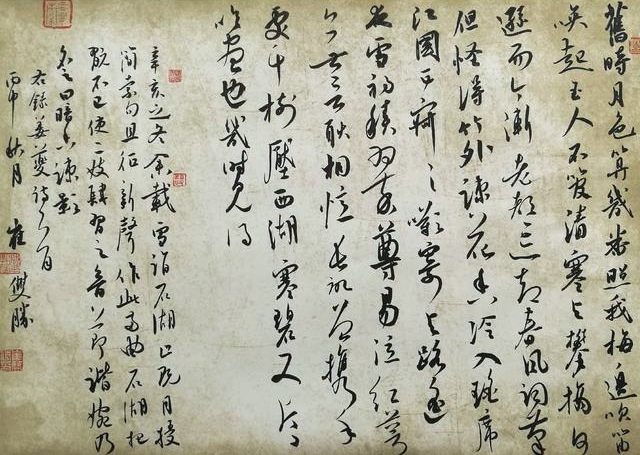 舊時月色算幾番照我梅邊吹笛
喚起玉人不管清寒與攀摘何
遜而今漸老都忘却春風詞筆
但怪得竹外疎花香冷入瑤席
江國正寂寂嘆寄與路遙
夜雪初積翠尊易泣紅萼
無言耿相憶長記曾攜手
處千樹壓西湖寒碧又片片
吹盡也幾時見得
辛亥之冬余載雪詣石湖止既月授
簡索句且征新聲作此兩曲石湖把
翫不已使二妓肄習之音節諧婉乃
名之曰暗香疎影
右錄姜夔詩一首
丙申秋月 崔雙勝